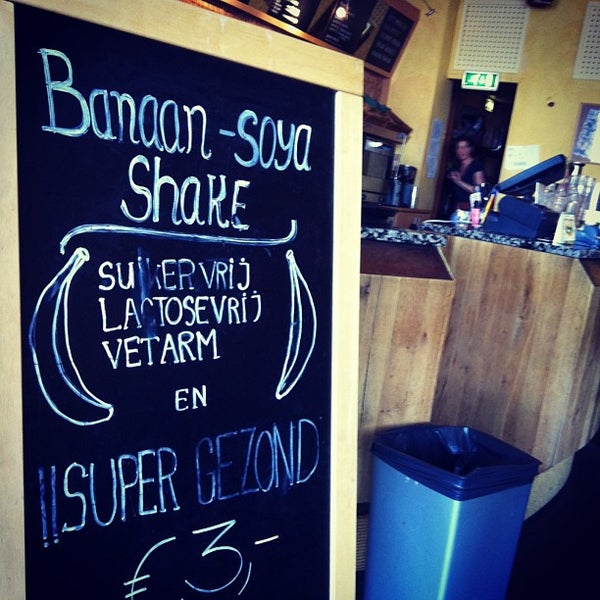 Banaan-soya
Shake
SUIKERVRIJ
LACTOSEVRIJ
VETARM
EN
!!SUPER GEZOND
€ 3,-